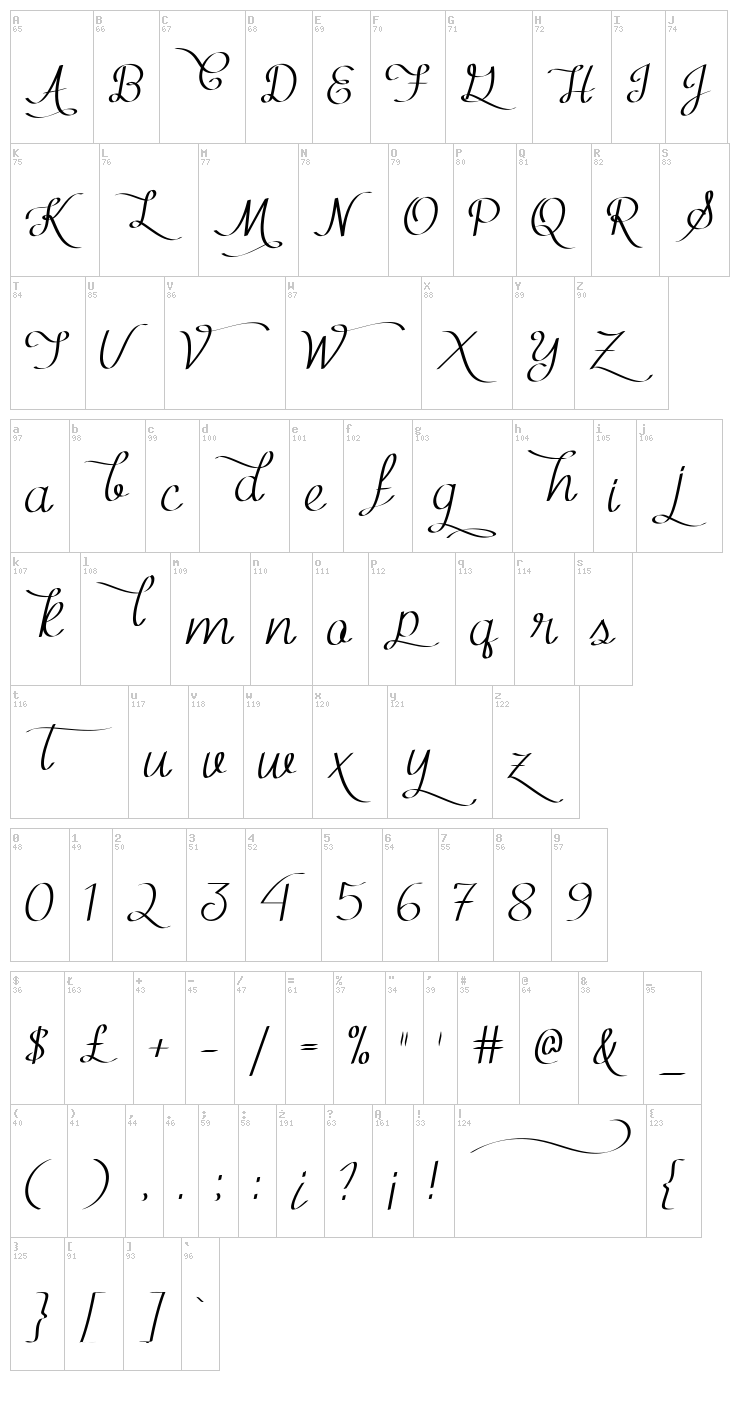 A B C D E F G H I J
65 66 67 68 69 70 71 72 73 74
A B C D E F G H I J
K L M N O P Q R S
75 76 77 78 79 80 81 82 83
K L M N O P Q R S
T U V W X Y Z
84 85 86 87 88 89 90
T U V W X Y Z
a b c d e f g h i j
97 98 99 100 101 102 103 104 105 106
a b c d e f g h i j
k l m n o p q r s
107 108 109 110 111 112 113 114 115
k l m n o p q r s
t u v w x y z
116 117 118 119 120 121 122
t u v w x y z
0 1 2 3 4 5 6 7 8 9
48 49 50 51 52 53 54 55 56 57
0 1 2 3 4 5 6 7 8 9
$ Ł + - / = % " ' # @ & _
36 163 43 45 47 61 37 34 39 35 64 38 95
$ £ + - / = % " ' # @ & _
( ) , . ; : ż ? Ą ! | {
40 41 44 46 59 58 191 63 161 33 124 123
( ) , . ; : ¿ ? ¡ ! {
} [ ] `
125 91 93 96
} [ ] `